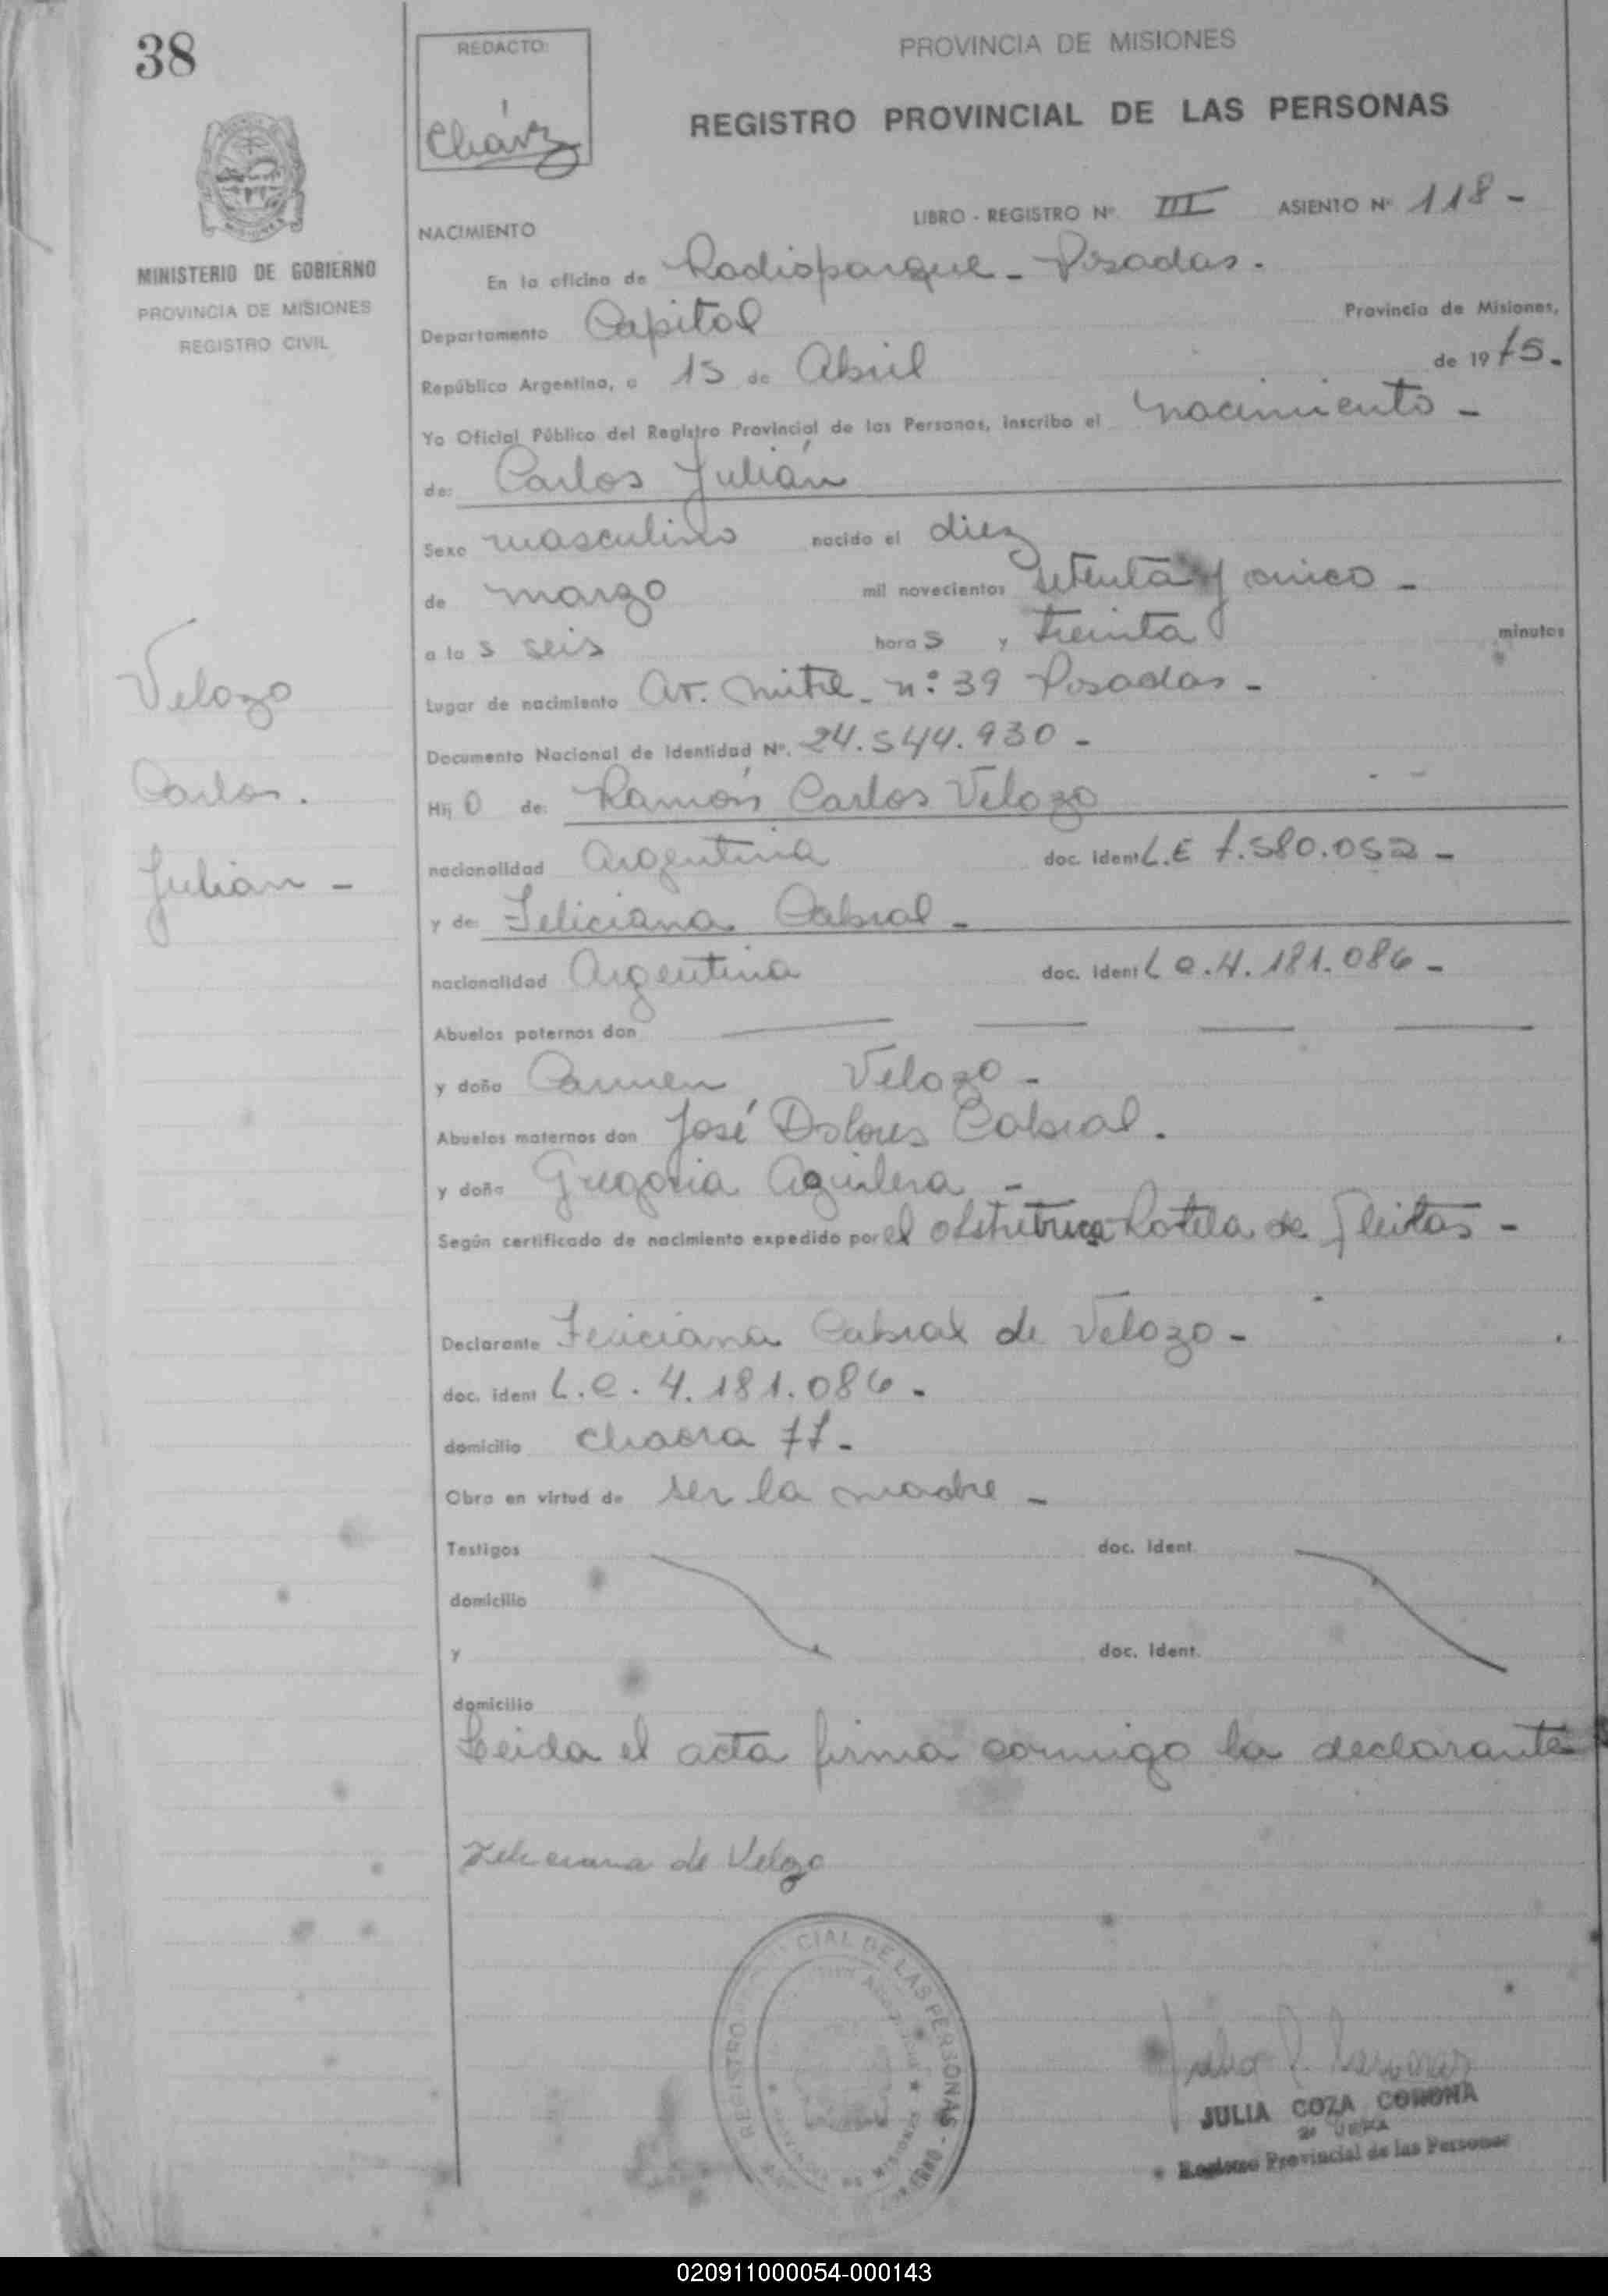 38
REDACTO:
Cháv‌ez
PROVINCIA DE MISIONES
REGISTRO PROVINCIAL DE LAS PERSONAS
LIBRO - REGISTRO Nº III ASIENTO Nº 118 -
MISIONES
MINISTERIO DE GOBIERNO
PROVINCIA DE MISIONES
REGISTRO CIVIL
NACIMIENTO
En la oficina de Radioparque - Posadas.
Departamento Capital Provincia de Misiones,
República Argentina, a 15 de Abril de 1975.
Yo Oficial Público del Registro Provincial de las Personas, inscribo el nacimiento -
de: Carlos Julián
Sexo masculino nacido el diez
de marzo mil novecientos setenta y cinco -
a la s seis hora s y treinta minutos
Lugar de nacimiento Av. Mitre - nº 39 Posadas -
Documento Nacional de Identidad Nº. 24.544.930 -
Hij o de: Ramón Carlos Velozo
nacionalidad Argentina doc. ident L.E 7.580.052 -
y de: Feliciana Cabral -
nacionalidad Argentina doc. ident L.C. 4.181.086 -
Velozo
Carlos.
Julian -
Abuelos paternos don
y doña Carmen Velozo -
Abuelos maternos don José Dolores Cabral.
y doña Gregoria Aguilera -
Según certificado de nacimiento expedido por el obstetrica Rotela de Fleitas -
Declarante Feliciana Cabral de Velozo -
doc. ident L.C. 4.181.086 -
domicilio Chacra 77 -
Obra en virtud de ser la madre -
Testigos doc. Ident.
domicilio
y doc. Ident.
domicilio
Leida el acta firma conmigo la declarante
Feleciana de Velozo
CIAL DE LAS PERSONAS
REGISTRO
DE MISIONES
JULIA COZA CORONA
Registro Provincial de las Personas
020911000054-000143